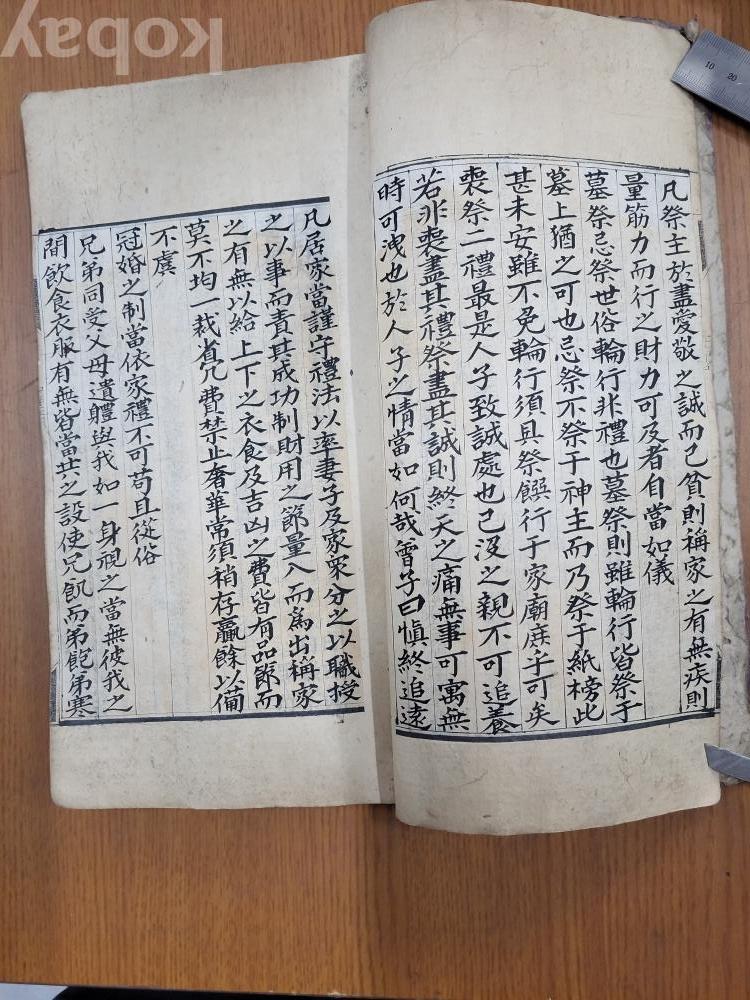 凡祭主於盡愛敬之誠而已貧則稱家之有無疾則
量筋力而行之財力可及者自當如儀
墓祭忌祭世俗輪行非禮也墓祭則雖輪行皆祭于
墓上猶之可也忌祭不祭于神主而乃祭于紙榜此
甚未安雖不免輪行須具祭饌行于家廟庶乎可矣
喪祭二禮最是人子致誠處也已沒之親不可追養
若非喪盡其禮祭盡其誠則終天之痛無事可寓無
時可洩也於人子之情當如何哉曾子曰愼終追遠
凡居家當謹守禮法以率妻子及家衆分之以職授
之以事而責其成功制財用之節量入而爲出稱家
之有無以給上下之衣食及吉凶之費皆有品節而
莫不均一裁省冗費禁止奢華常須稍存贏餘以備
不虞
冠婚之制當依家禮不可苟且從俗
兄弟同受父母遺體與我如一身視之當無彼我之
間飮食衣服有無皆當共之設使兄飢而弟飽弟寒
kobay
10 20